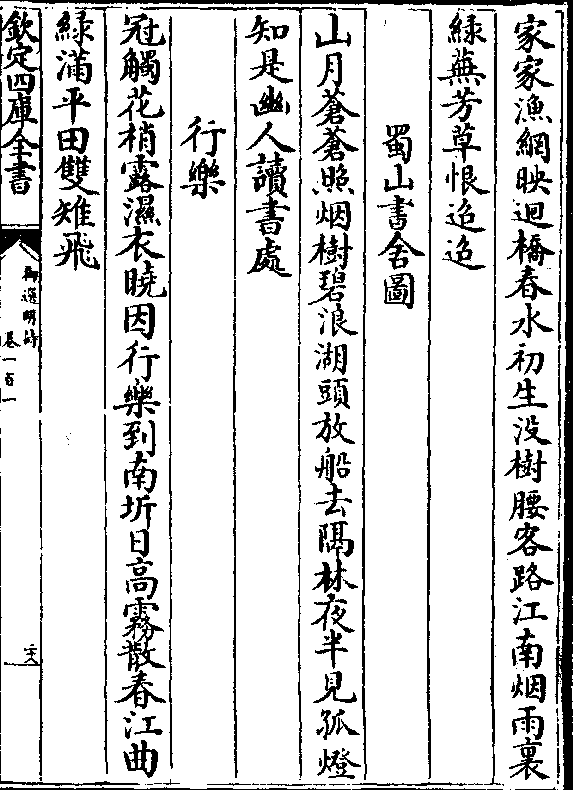 家家漁網映迴橋春水初生没樹腰客路江南烟雨裏
緑蕪芳草恨迢迢
蜀山書舍圖
山月蒼蒼照烟樹碧浪湖頭放船去隔林夜半見孤燈
知是幽人讀書處
行樂
冠觸花梢露濕衣曉因行樂到南圻日高霧散春江曲
緑滿平田雙雉飛
欽定四庫全書
御選明詩
卷一百一
二六